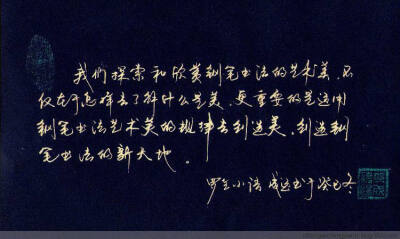 我们探索和欣赏钢笔书法的艺术美,不
仅在于怎样去了解什么是美,更重要的是运用
钢笔书法艺术美的规律去创造美,创造钢
笔书法的新天地。
罗兰小语 成达书于癸巳冬